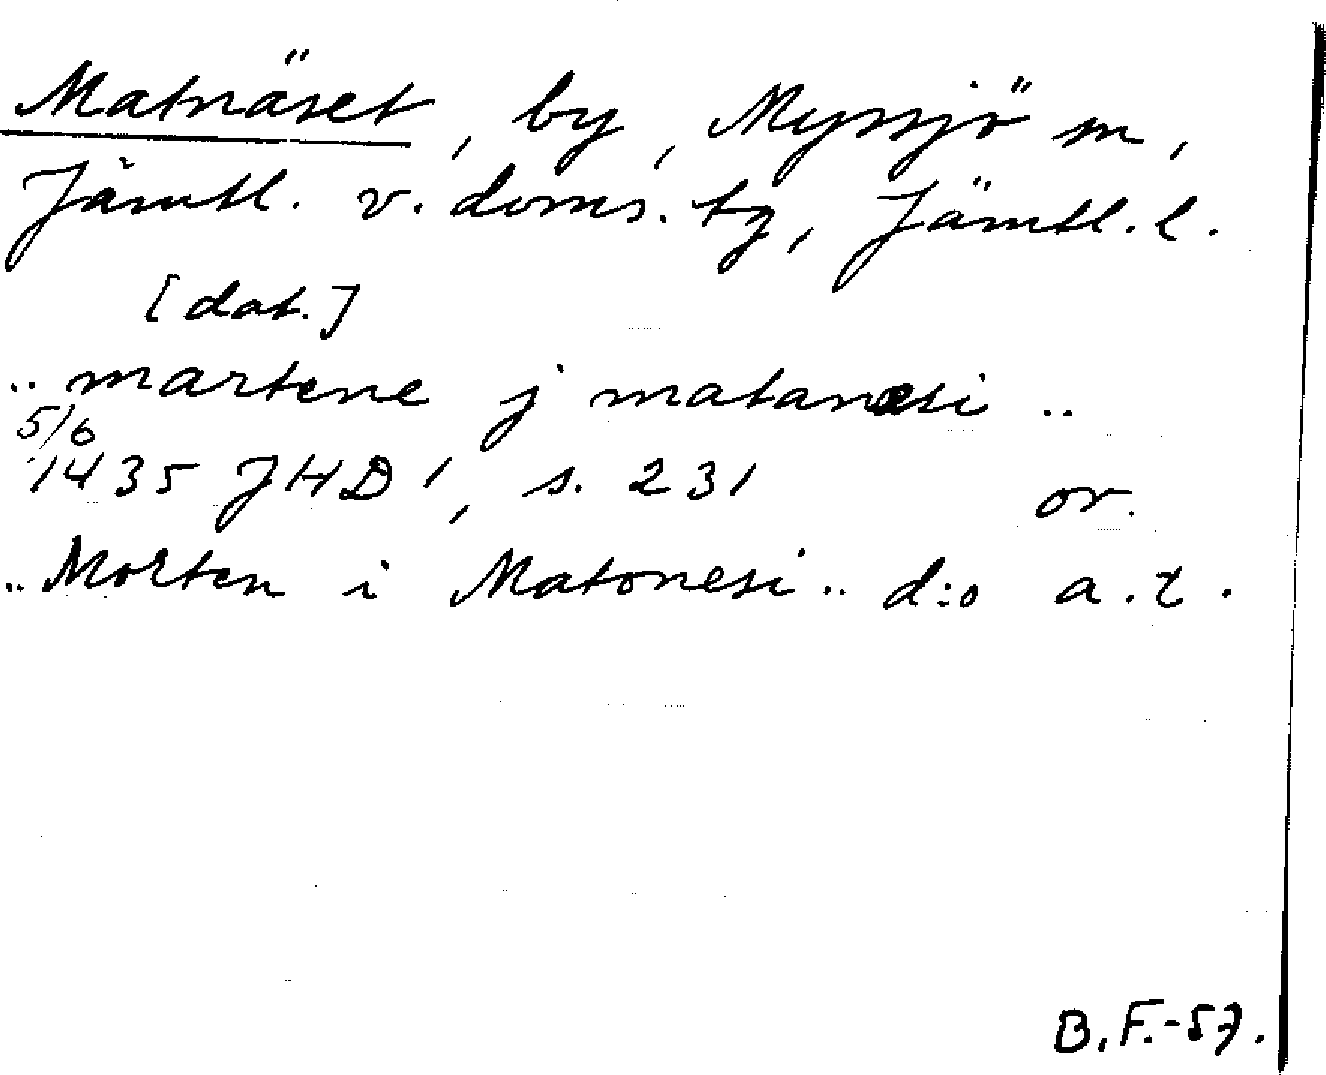 Matnäset, by, Myssjö sn,
Jämtl. v. doms. tg, Jämtl. l.
[dat.]
.. martene j matanesi ..
5/6
1435 JHD 1, s. 231 or.
.. Morten i Matonesi .. d:o a. t.
B.F.-57.